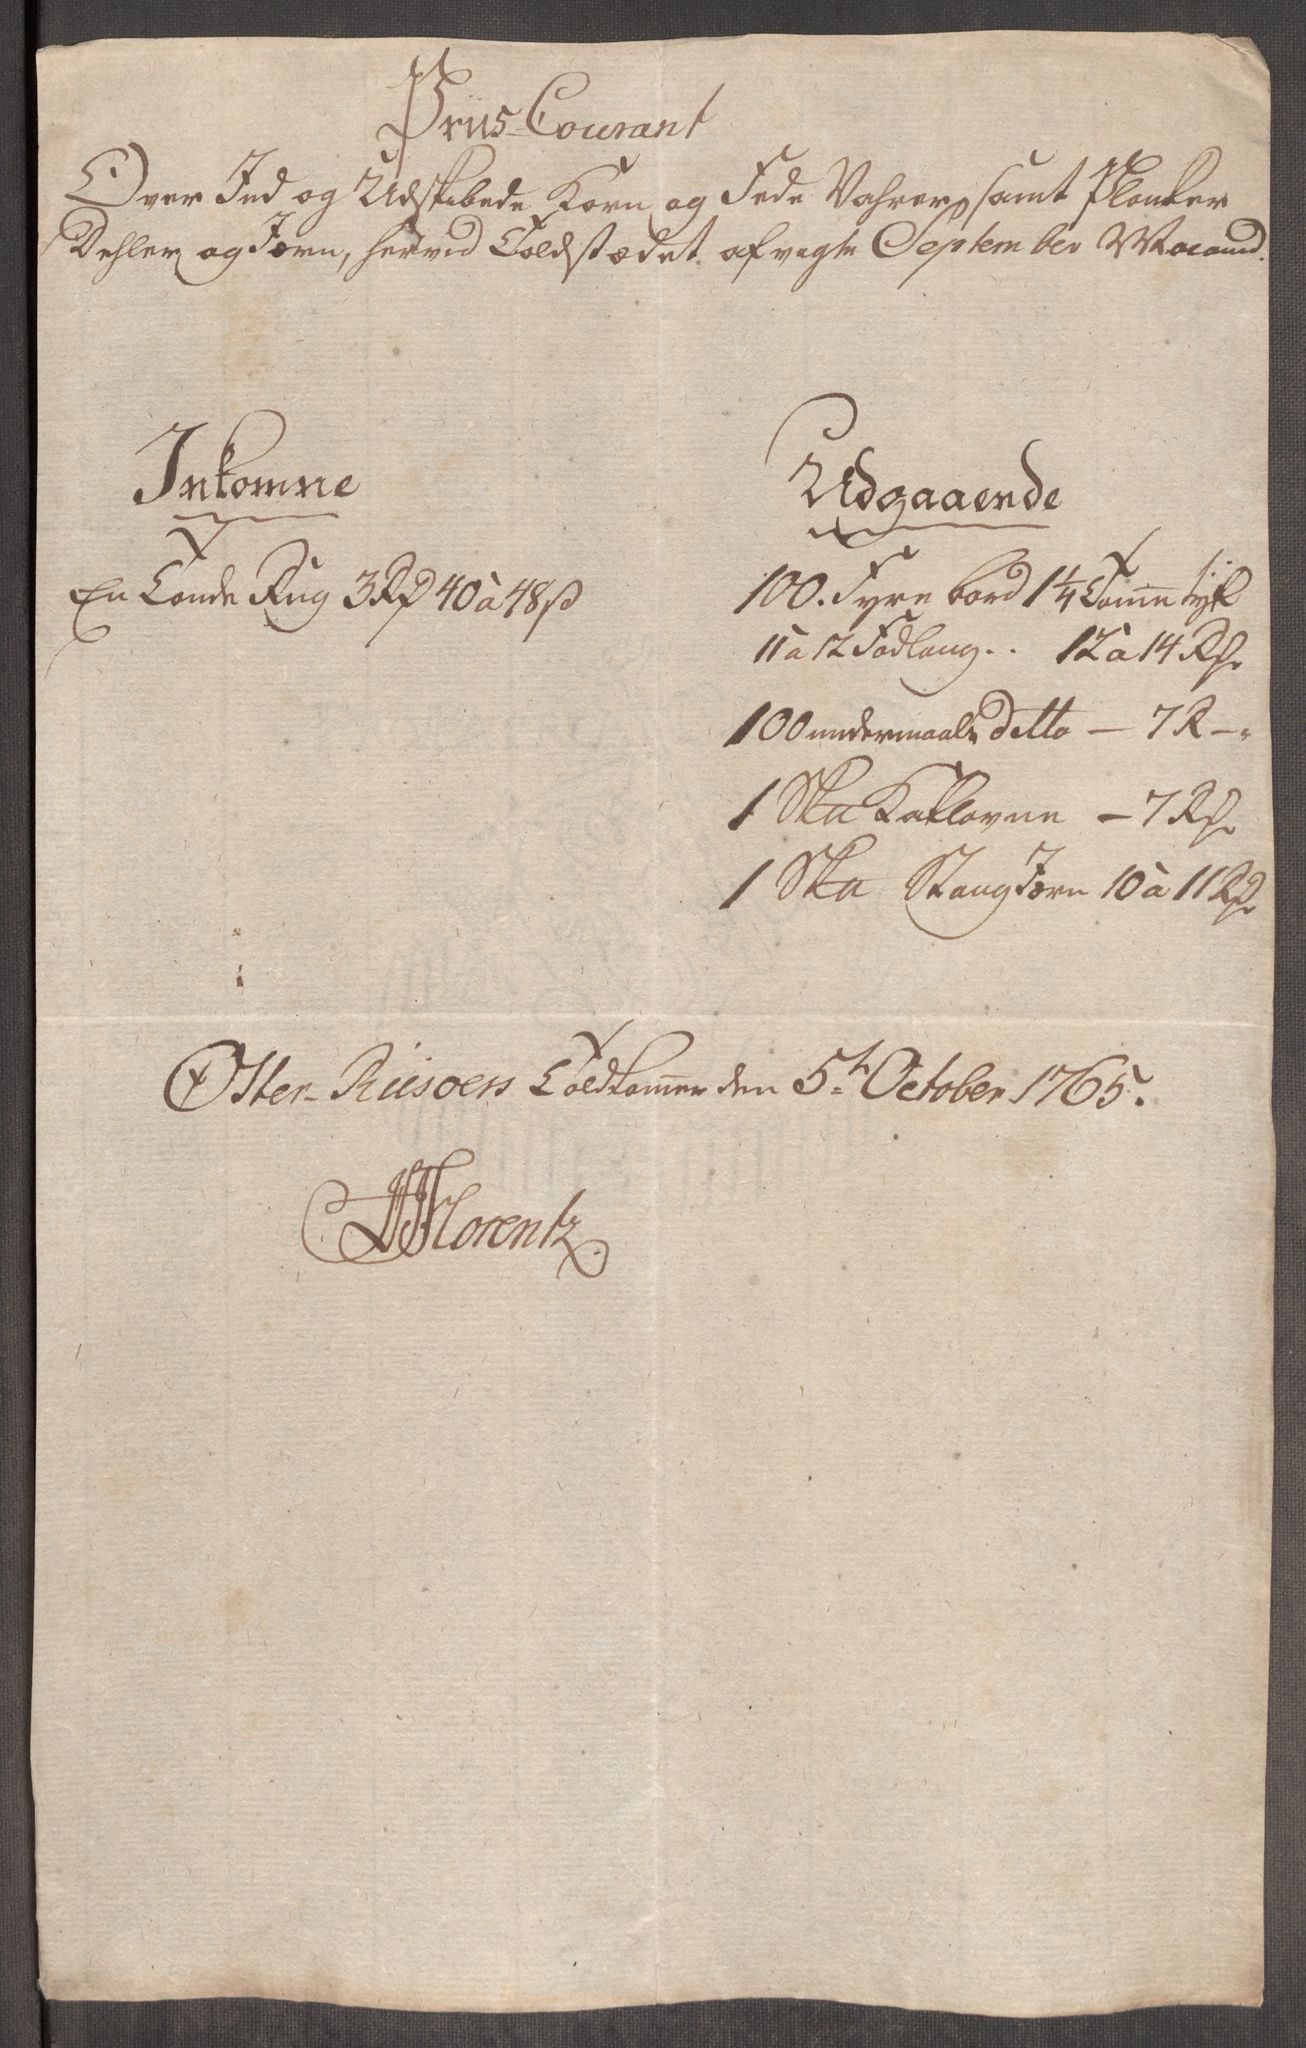 Priis-Courant
Over Ind og Udskibede Korn og Fede Vahrer, samt Planker
Dehler og Jern, herved Toldstædet afvigte September Maaned.
Inkomne
En Tønde Rug 3 Rd 40 à 48 ß
Udgaaende
100. Fyre bord 1 1/4 Tomme tyk
11 a 12 Fod lang.. 12 à 14 Rd.
100 undermaals ditto — 7 R —
1 Skа Kaklovne — 7 Rd.
1 Skа Stang Jern 10 à 11 Rd.
Øster-Riisøers Toldkammer den 5te October 1765.
Florentz